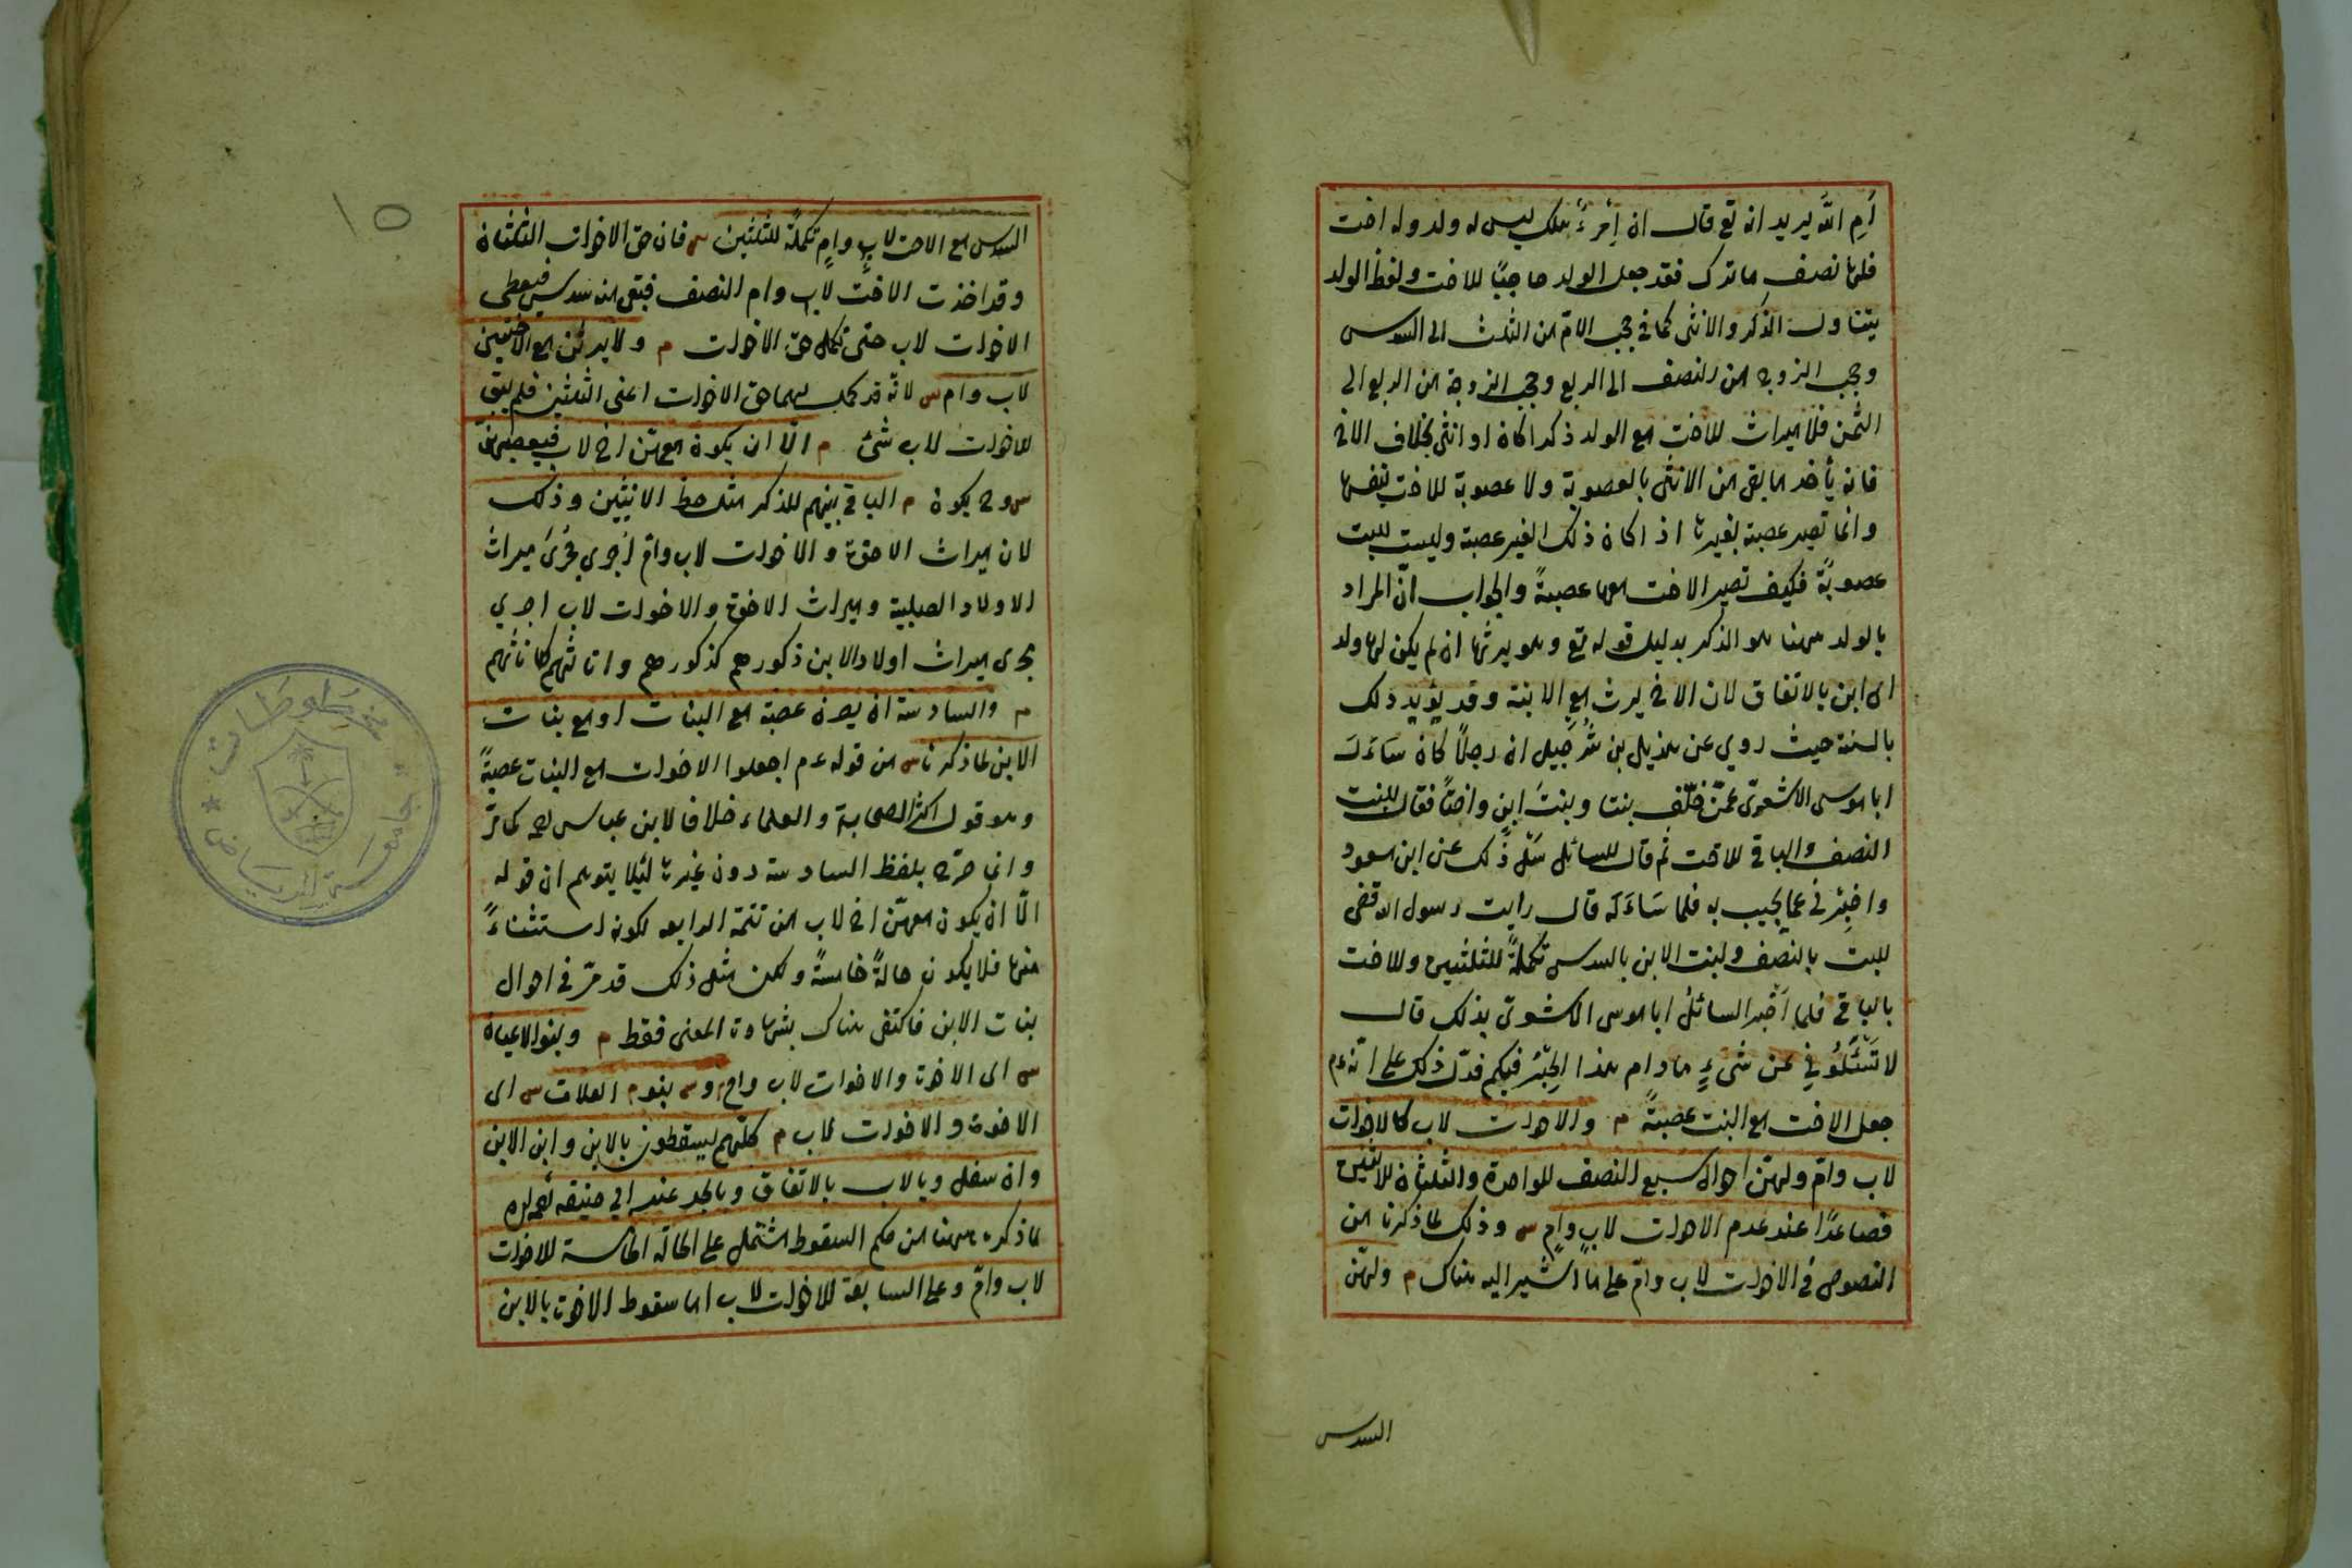 أم الله يريد انه تع قال ان امرءٌ هلك ليس له ولد وله اخت
فلها نصف ما ترك فقد جعل الولد حاجبًا للاخت ولفظ الولد
يتناول الذكر والانثى كما في حجب الامّ من الثلث الى السدس
وحجب الزوج من النصف الى الربع وحجب الزوجة من الربع الى
الثمن فلا ميراث للاخت مع الولد ذكرا كان او انثى بخلاف الاخ
فانه يأخذ ما بقى من الانثى بالعصوبة ولا عصوبة للاخت بنفسها
وانما تصير عصبة بغيرها اذا كان ذلك الغير عصبة وليست للبنت
عصوبةً فكيف تصير الاخت معها عصبةً والجواب انّ المراد
بالولد ههنا هو الذكر بدليل قوله تع وهو يرثها ان لم يكن لها ولد
اى ابن بالاتفاق لان الاخ يرث مع الابنة وقد يؤيد ذلك
بالسنة حيث روي عن هذيل بن شُرَحبيل ان رجلًا كان سَاءَلَ
ابا موسى الاشعرى عمّن خلّف بنتا وبنتَ ابنٍ واختاً فقال للبنت
النصف والباقى للاخت ثم قال للسائل سَلْ ذلك عن ابن مسعود
واخبرني عما يجيب به فلما سَاءَلَه قال رايت رسول الله قضى
للبنت بالنصف ولبنت الابن بالسدس تكملةً للثلثين وللاخت
بالباقى فلما اَخبر السائلُ ابا موسى الاشعرى بذلك قال
لا تَسْئَلُوني عن شيءٍ ما دام هذا الحِبْرُ فيكم فدلّ ذلك على انّه عم
جعل الاخت مع البنت عصبةً م والاخوات لاب كالاخوات
لاب وامّ ولهنّ احوال سبع النصف للواحدة والثلثان للاثنتين
فصاعدًا عند عدم الاخوات لابٍ وامٍ س وذلك لما ذكرنا من
النصوص فى الاخوات لاب وامّ على ما اشير اليه هناك م ولهنّ
السدس
١٥
السدس مع الاخت لابٍ وامٍ تكملةً للثلثين س فان حق الاخوات الثلثان
وقد اخذت الاختُ لاب وام النصف فبقى منه سدس فيعطى
الاخوات لاب حتى تكمل حق الاخوات م ولا يرثن مع الاختين
لاب وام س لانه قد كمل لهما حق الاخوات اعنى الثلثين فلم يبق
للاخوات لاب شئ م الّا ان يكون معهنّ اخ لاب فيعصبهنّ
س وح يكون م الباقى بينهم للذكر مثل حظ الانثيين وذلك
لان ميراث الاخوة والاخوات لاب وامّ أجري مجرىَ ميراث
الاولاد الصلبية وميراث الاخوة والاخوات لاب اجري
مجرى ميراث اولاد الابن ذكورهم كذكورهم واناثهم كاناثهم
م والسادسة ان يصرن عصبة مع البنات او مع بنات
الابن لما ذكرنا س من قوله عم اجعلوا الاخوات مع البنات عصبةً
وهو قول اكثر الصحابة والعلماء خلافا لابن عباس رضه كما مرّ
وانما صرّح بلفظ السادسة دون غيرها لئلا يتوهم ان قوله
الّا ان يكون معهنّ اخ لاب من تتمة الرابعه لكونه استثناءً
منها فلا يكون حالةً خامسةً ولكن مثل ذلك قد مرّ فى احوال
بنات الابن فاكتفى هناك بشهادة المعنى فقط م وبنو الاعيان
س اى الاخوة والاخوات لاب وام م و س بنو م العلات س اى
الاخوة والاخوات لاب م كلّهم يسقطون بالابن وابن الابن
وان سفل وبالاب بالاتفاق وبالجد عند ابي حنيفه رحمه الله
لما ذكره ههنا من حكم السقوط اشتمل على الحالة الخامسة للاخوات
لاب وامّ وعلى السابعة للاخوات لاب اما سقوط الاخوة بالابن
مخطوطات
جامعة الرياض